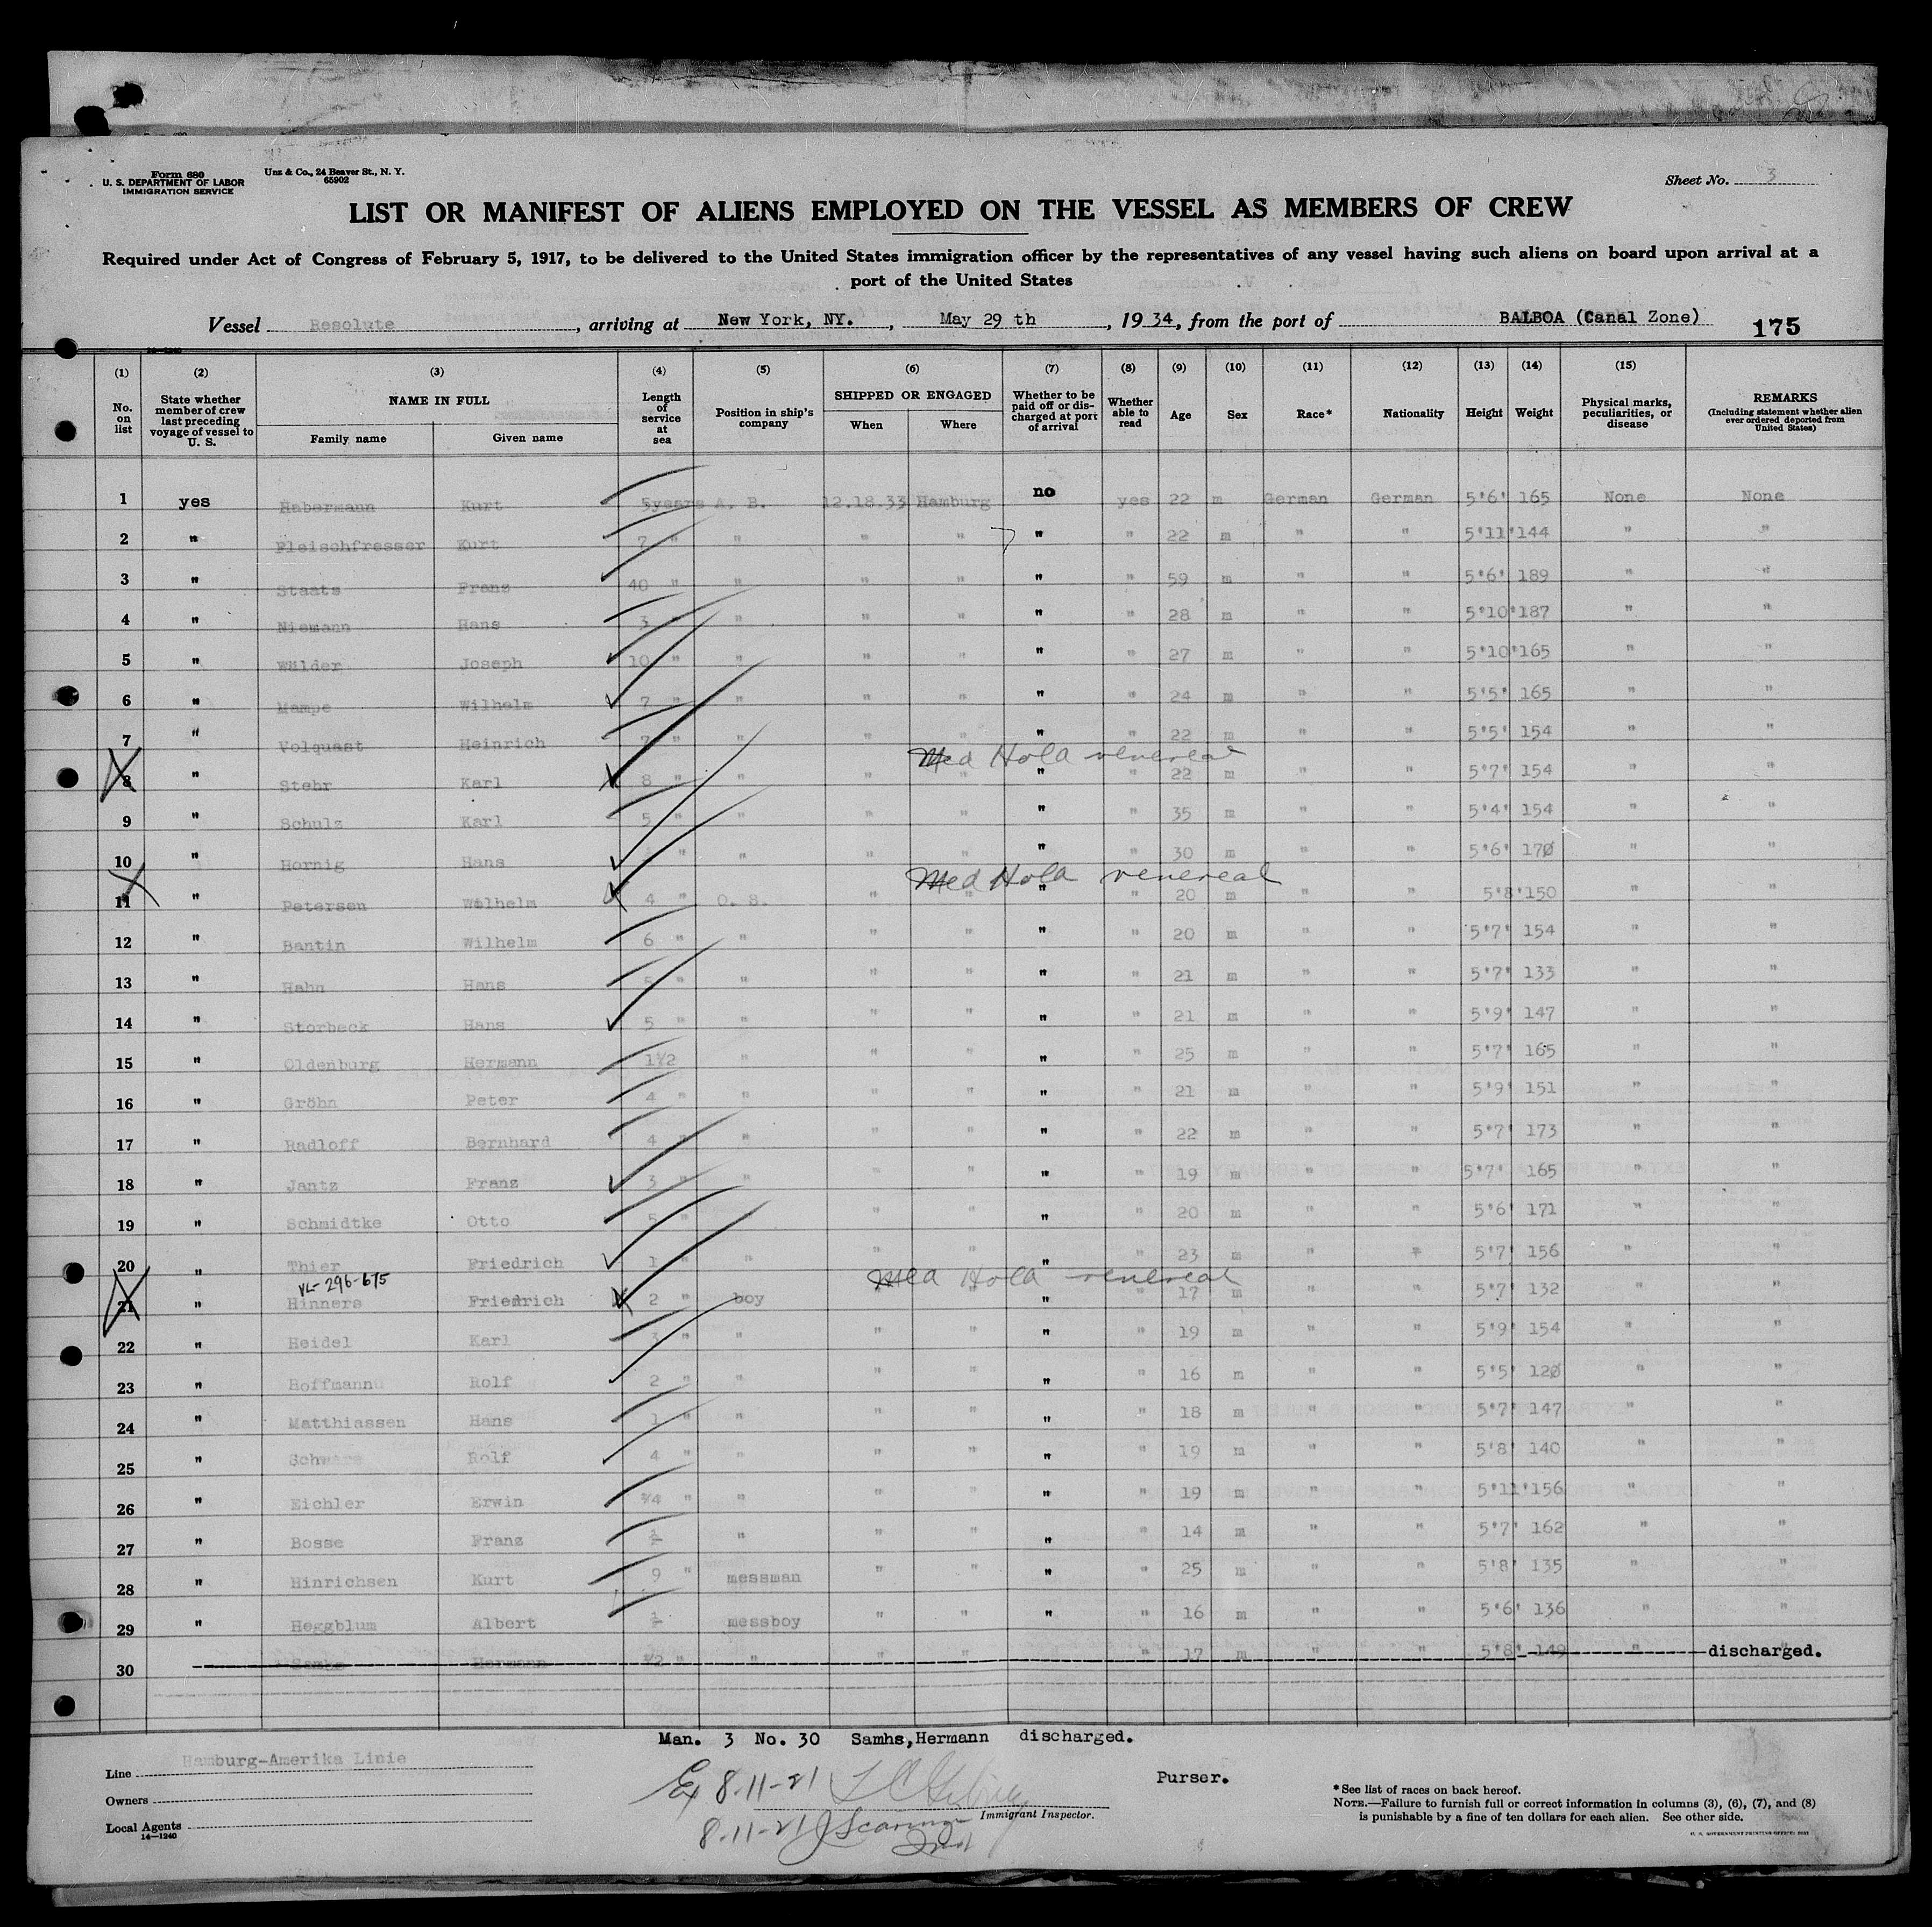 Form 680
U. S. DEPARTMENT OF LABOR
IMMIGRATION SERVICE
Unz & Co., 24 Beaver St., N. Y.
65902
Sheet No. 3
LIST OR MANIFEST OF ALIENS EMPLOYED ON THE VESSEL AS MEMBERS OF CREW
Required under Act of Congress of February 5, 1917, to be delivered to the United States immigration officer by the representatives of any vessel having such aliens on board upon arrival at a
port of the United States
Vessel Resolute, arriving at New York, NY., May 29 th, 1934, from the port of BALBOA (Canal Zone) 175
14-1240
(1) (2) (3) (4) (5) (6) (7) (8) (9) (10) (11) (12) (13) (14) (15)
No. on list
State whether member of crew last preceding voyage of vessel to U. S.
NAME IN FULL
Family name Given name
Length of service at sea
Position in ship's company
SHIPPED OR ENGAGED
When Where
Whether to be paid off or discharged at port of arrival
Whether able to read
Age
Sex
Race*
Nationality
Height
Weight
Physical marks, peculiarities, or disease
REMARKS
(Including statement whether alien ever ordered deported from United States)
1 yes Habermann Kurt 5years A. B. 12.18.33 Hamburg no yes 22 m German German 5'6' 165 None None
2 " Fleischfresser Kurt 7 " " " " " " 22 m " " 5'11' 144 " "
3 " Staats Franz 40 " " " " " " 59 m " " 5'6' 189 " "
4 " Niemann Hans 3 " " " " " 28 m " " 5'10' 187 " "
5 " Wälder Joseph 10 " " " " " " 27 m " " 5'10' 165 " "
6 " Mampe Wilhelm 7 " " " " " " 24 m " " 5'5' 165 " "
7 " Volquast Heinrich 7 " " " " " " 22 m " " 5'5' 154 " "
Med Hold venereal
8 " Stehr Karl 8 " " " " " " 22 m " " 5'7' 154 " "
9 " Schulz Karl 5 " " " " " " 35 m " " 5'4' 154 " "
10 " Hornig Hans " " " " " " 30 m " " 5'6' 170 " "
Med Hold venereal
11 " Petersen Wilhelm 4 " O. S. " " " " 20 m " " 5'8' 150 " "
12 " Bantin Wilhelm 6 " " " " " " 20 m " " 5'7' 154 " "
13 " Hahn Hans 5 " " " " " " 21 m " " 5'7' 133 " "
14 " Storbeck Hans 5 " " " " " " 21 m " " 5'9' 147 " "
15 " Oldenburg Hermann 1 1/2 " " " " " 25 m " " 5'7' 165 " "
16 " Gröhn Peter 4 " " " " " " 21 m " " 5'9' 151 " "
17 " Radloff Bernhard 4 " " " " " " 22 m " " 5'7' 173 " "
18 " Jantz Franz 3 " " " " " " 19 m " " 5'7' 165 " "
19 " Schmidtke Otto 5 " " " " " 20 m " " 5'6' 171 " "
20 " Thier Friedrich 1 " " " " " " 23 m " " 5'7' 156 " "
VL-296-675
Med Hold venereal
21 " Hinners Friedrich 2 " boy " " " 17 m " " 5'7' 132 " "
22 " Heidel Karl 3 " " " " " " 19 m " " 5'9' 154 " "
23 " Hoffmann Rolf 2 " " " " " " 16 m " " 5'5' 120 " "
24 " Matthiassen Hans 1 " " " " " " 18 m " " 5'7' 147 " "
25 " Rolf 4 " " " " " 19 m " " 5'8' 140 " "
26 " Eichler Erwin 3/4 " " " " " " 19 m " " 5'11' 156 " "
27 " Bosse Franz " " " " " 14 m " " 5'7' 162 " "
28 " Hinrichsen Kurt 9 " messman " " " " 25 m " " 5'8' 135 " "
29 " Heggblum Albert messboy " " " " 16 m " " 5'6' 136 " "
30 Samhs Hermann 1/2 " " " " " 17 m " " 5'8' 149 " discharged.
Man. 3 No. 30 Samhs,Hermann discharged.
Line Hamburg-Amerika Linie
Owners
Local Agents
14-1240
Ex 8-11-21
Immigrant Inspector.
8-11-21
Purser.
*See list of races on back hereof.
NOTE.—Failure to furnish full or correct information in columns (3), (6), (7), and (8)
is punishable by a fine of ten dollars for each alien. See other side.